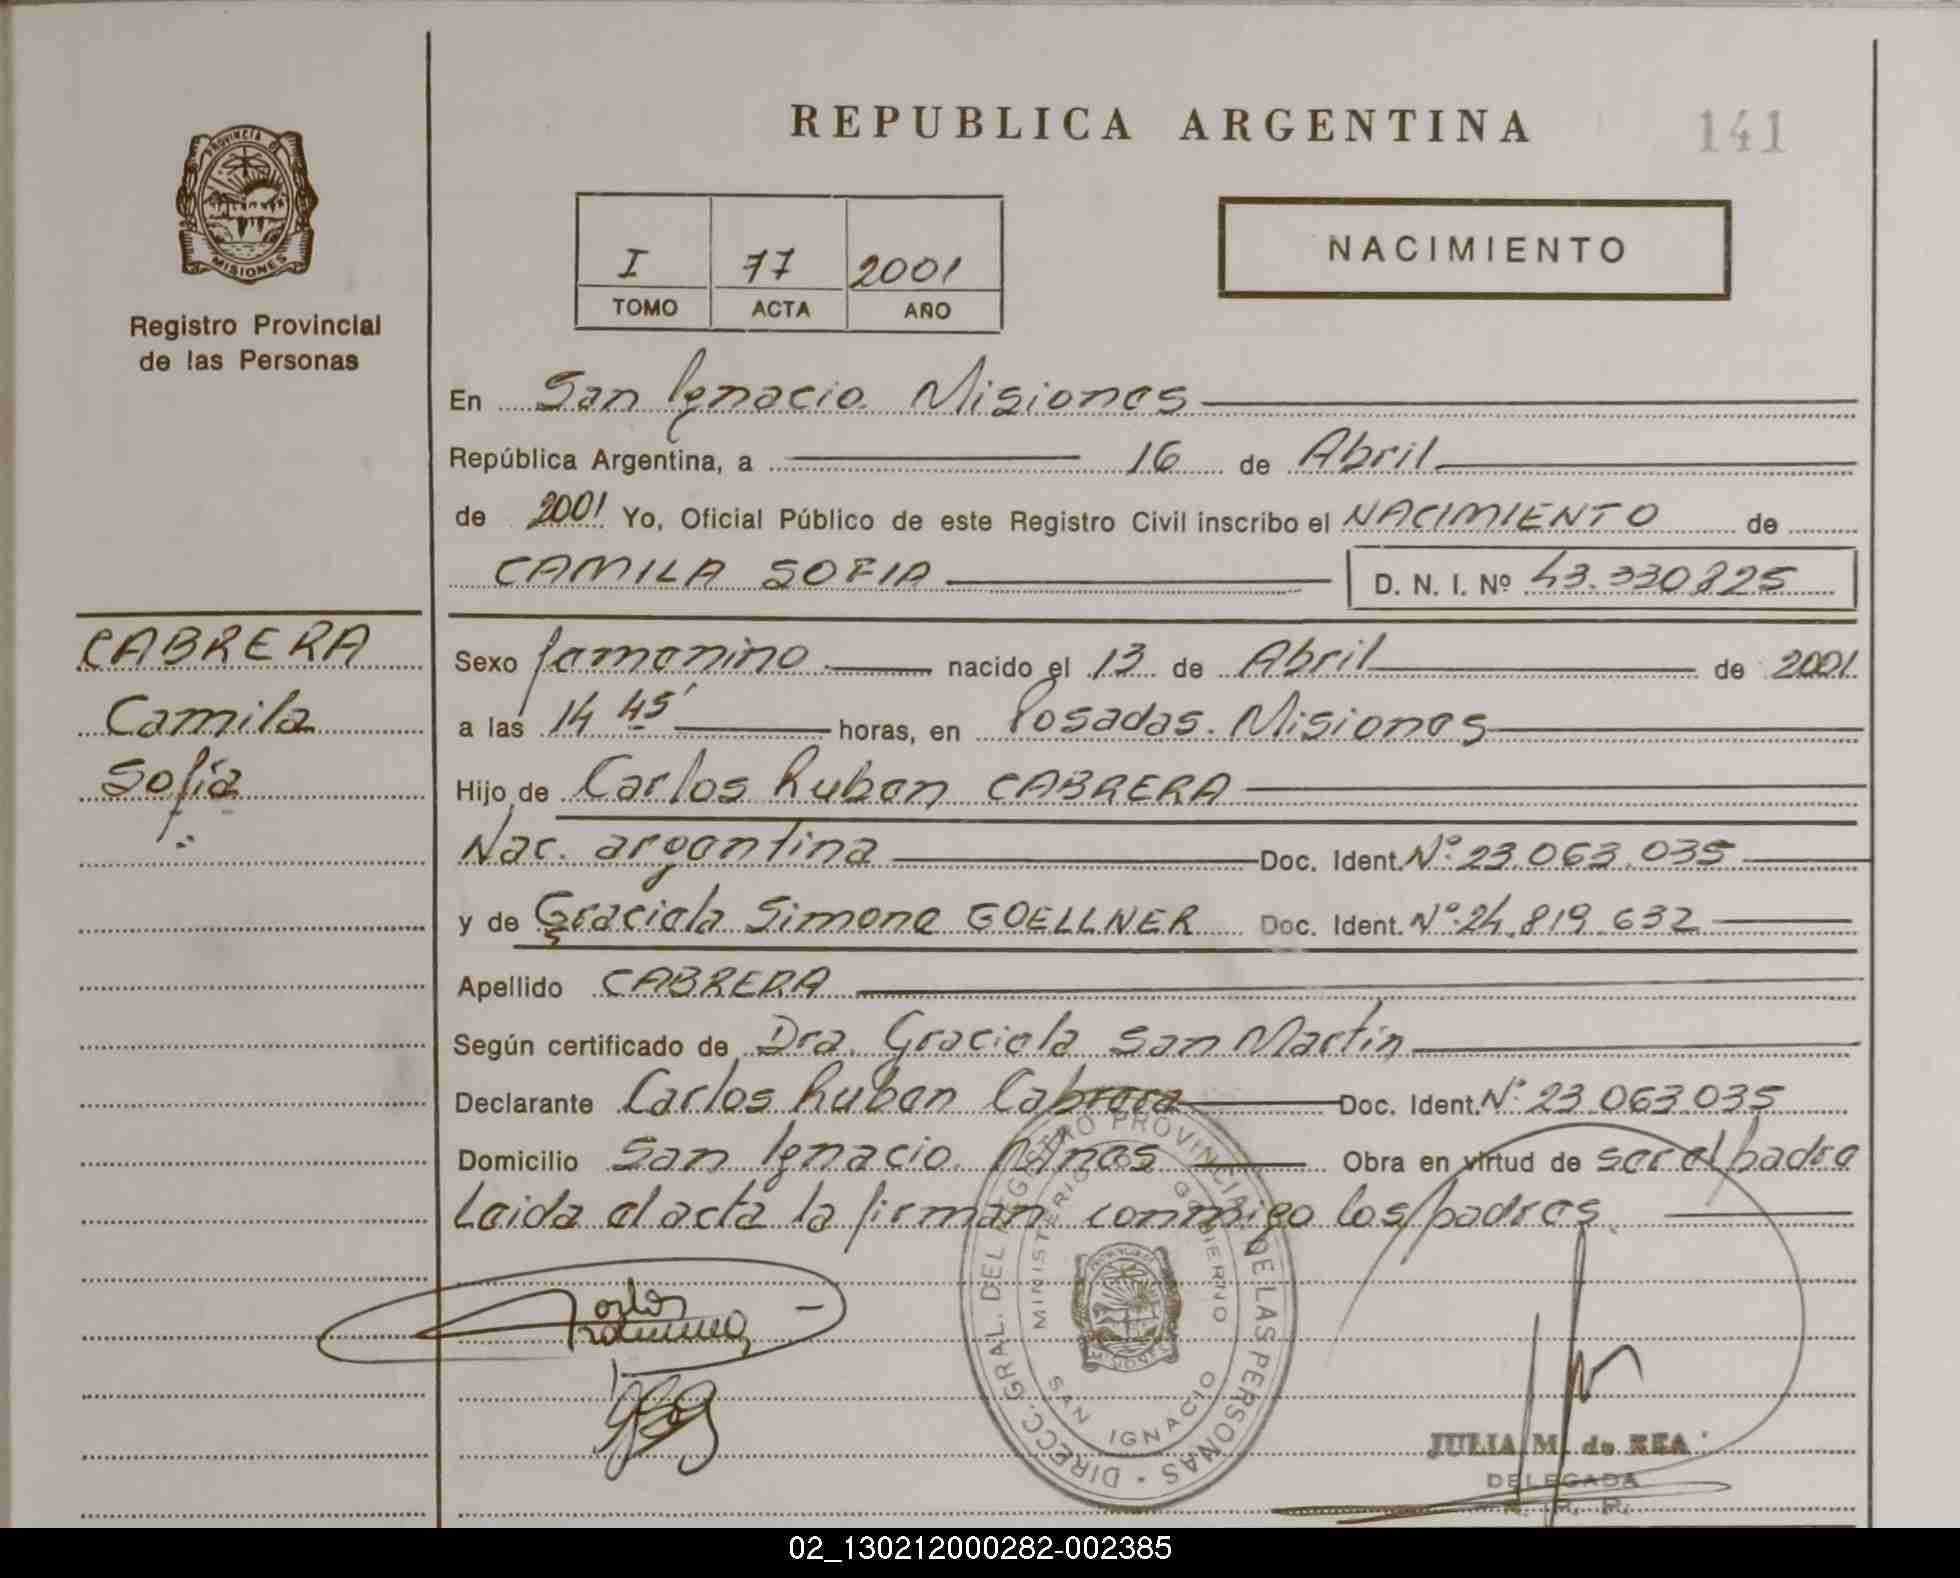 REPUBLICA ARGENTINA
141
PROVINCIA DE
MISIONES
Registro Provincial
de las Personas
I 77 2001
TOMO ACTA AÑO
NACIMIENTO
En San Ignacio. Misiones
República Argentina, a 16 de Abril
de 2001 Yo, Oficial Público de este Registro Civil inscribo el NACIMIENTO de
CAMILA SOFIA D. N. I. Nº 43.330825
CABRERA
Camila
Sofía
Sexo femenino nacido el 13 de Abril de 2001
a las 14 45' horas, en Posadas. Misiones
Hijo de Carlos Ruben CABRERA
Nac. argentina Doc. Ident. Nº: 23.063.035
y de Graciela Simone GOELLNER Doc. Ident. Nº: 24.819.632
Apellido CABRERA
Según certificado de Dra. Graciela San Martín
Declarante Carlos Ruben Cabrera Doc. Ident. Nº: 23.063.035
Domicilio San Ignacio. Obra en virtud de ser el padre
Leida el acta la firman conmigo los padres.
DIRECC. GRAL. DEL REGISTRO PROVINCIAL DE LAS PERSONAS
MINISTERIO DE GOBIERNO
SAN IGNACIO
JULIA M. de REA
DELEGADA
02_130212000282-002385